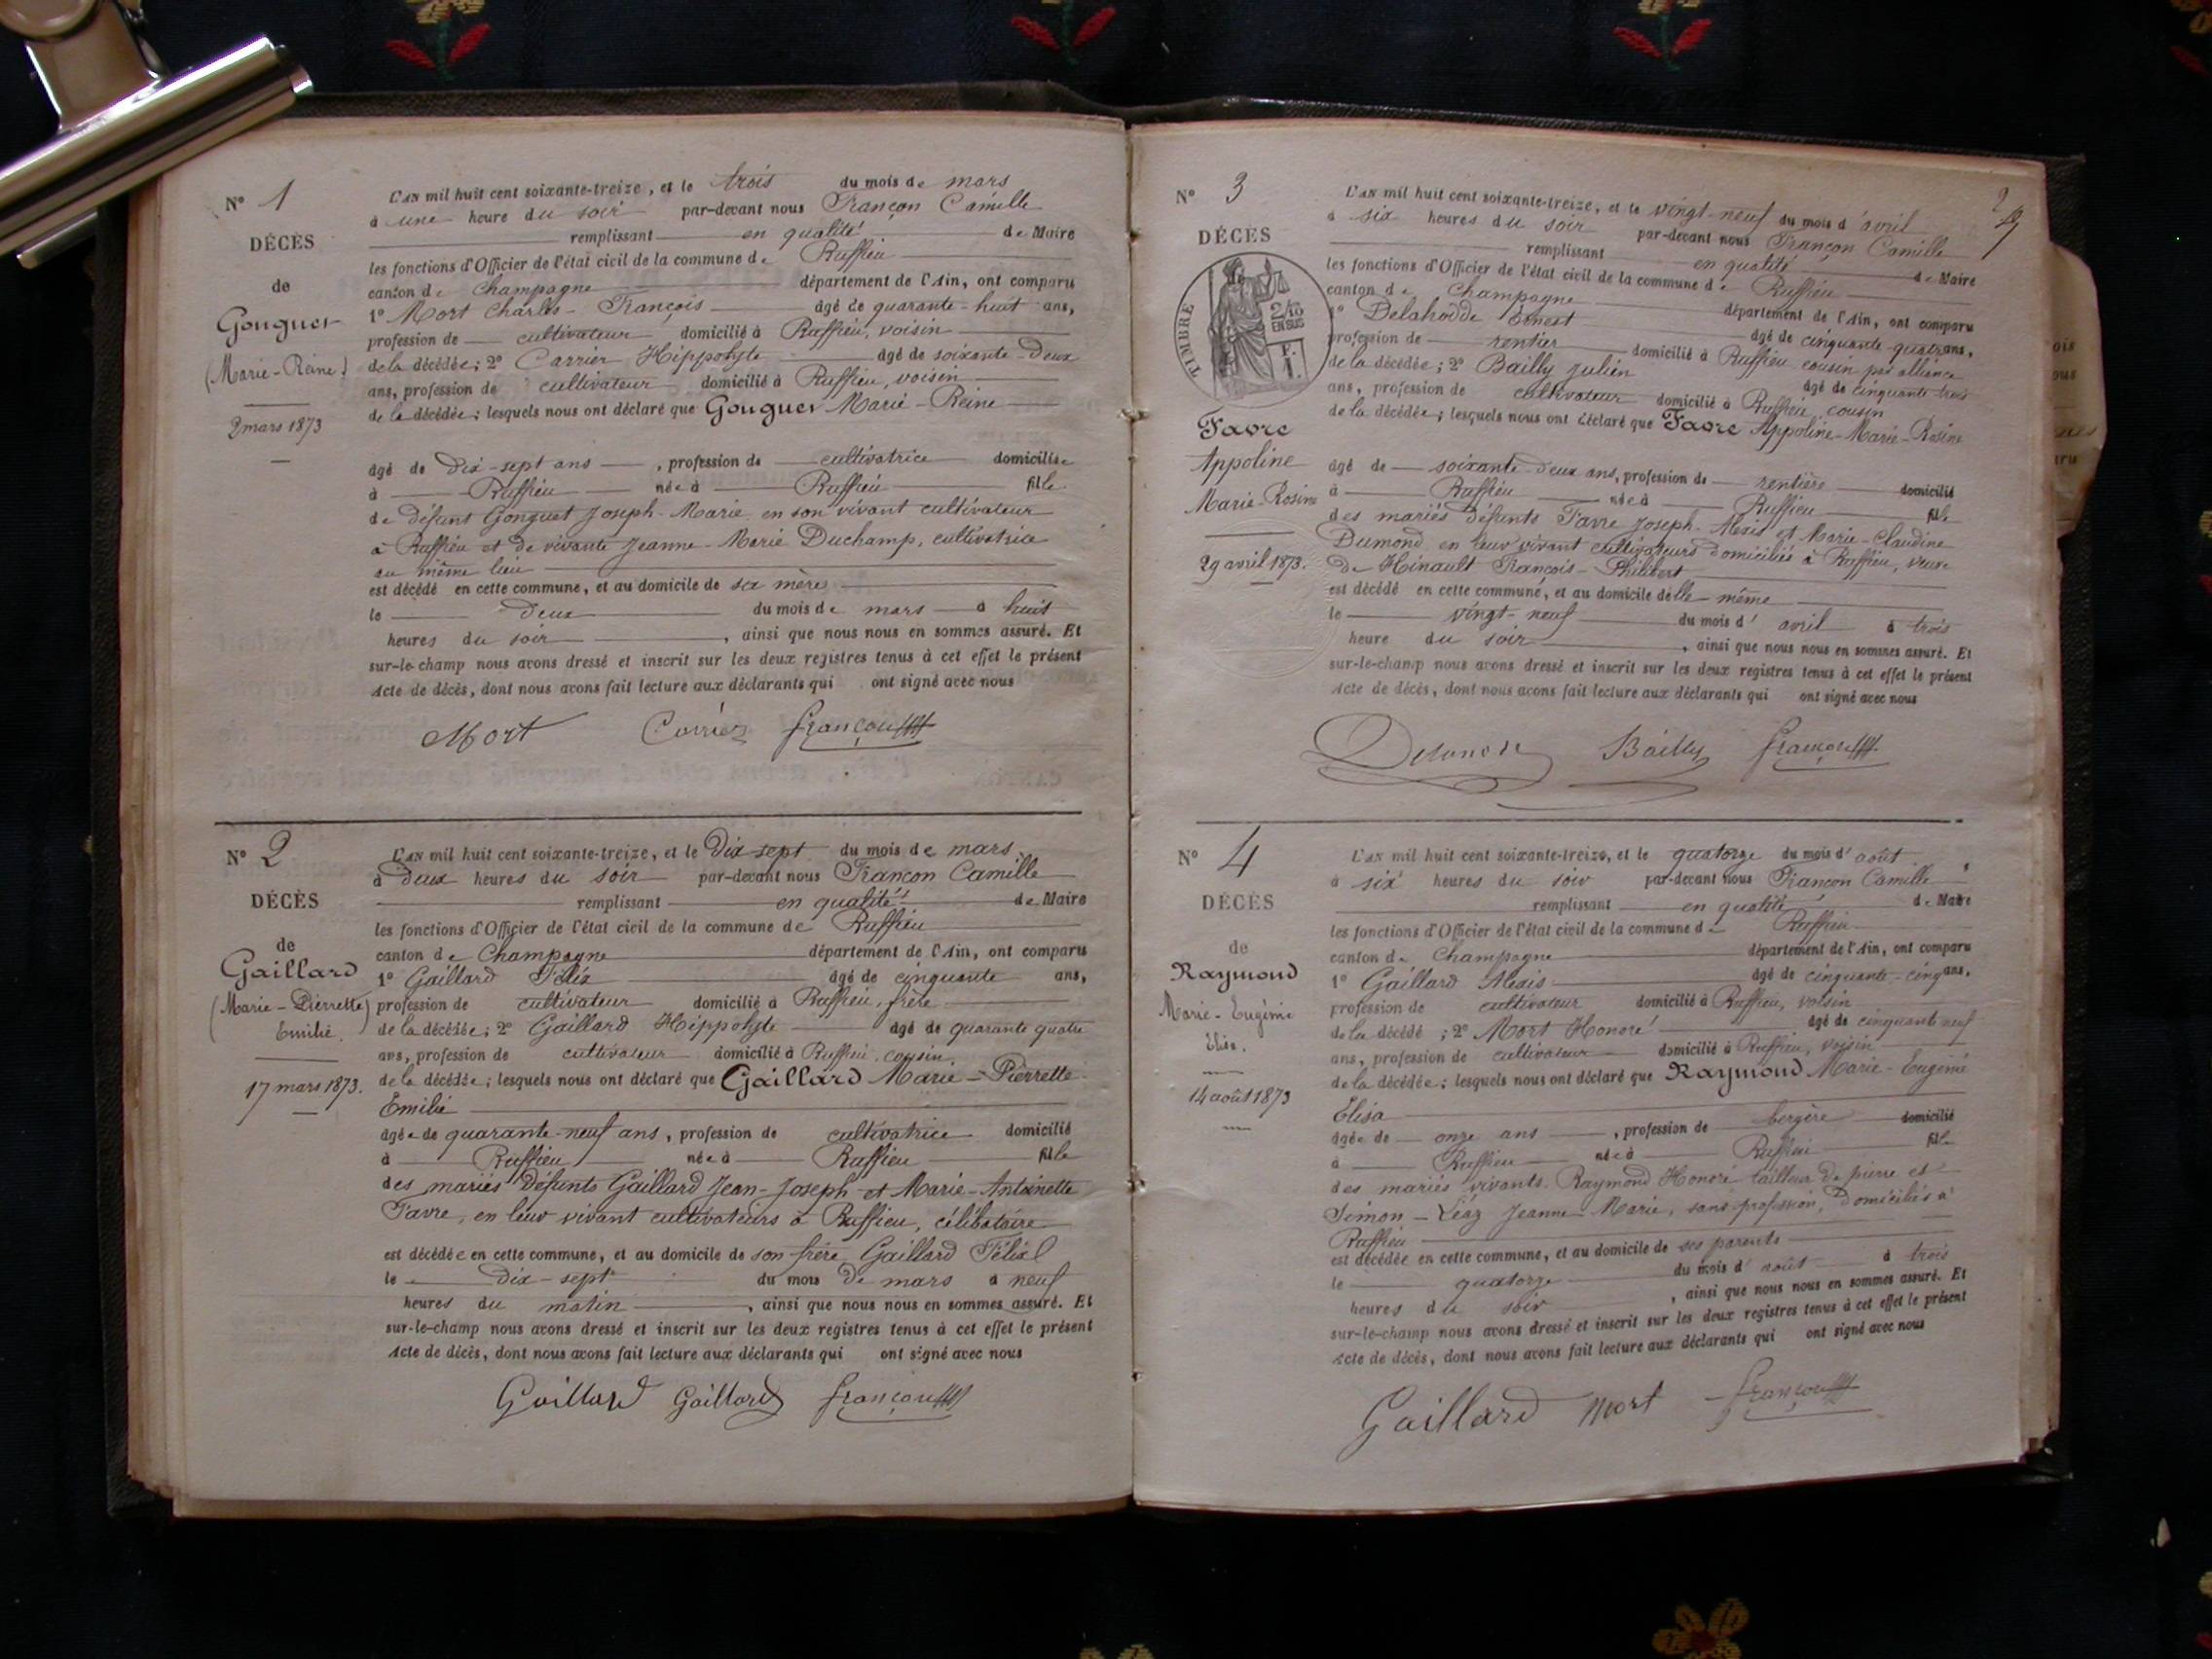 N° 1
DÉCÈS
de
Gonguet
(Marie-Reine)
2 mars 1873
L'AN mil huit cent soixante-treize, et le trois du mois de mars
à une heure du soir par-devant nous Françon Camille
remplissant en qualité de Maire
les fonctions d'Officier de l'état civil de la commune de Ruffieu
canton de Champagne département de l'Ain, ont comparu
1° Mort Charles-François âgé de quarante-huit ans,
profession de cultivateur domicilié à Ruffieu, voisin
de la décédée; 2° Carrier Hippolyte âgé de soixante-deux
ans, profession de cultivateur domicilié à Ruffieu, voisin
de la décédée; lesquels nous ont déclaré que Gonguet Marie-Reine
âgé de dix-sept ans, profession de cultivatrice domicilié
à Ruffieu née à Ruffieu fille
de défunt Gonguet Joseph-Marie en son vivant cultivateur
à Ruffieu et de vivante Jeanne-Marie Duchamp, cultivatrice
au même lieu
est décédé en cette commune, et au domicile de sa mère
le deux du mois de mars à huit
heures du soir, ainsi que nous nous en sommes assuré. Et
sur-le-champ nous avons dressé et inscrit sur les deux registres tenus à cet effet le présent
Acte de décès, dont nous avons fait lecture aux déclarants qui ont signé avec nous
Mort Carrier Françon
N° 2
DÉCÈS
de
Gaillard
(Marie-Pierrette)
Emilie.
17 mars 1873.
L'AN mil huit cent soixante-treize, et le dix-sept du mois de mars
à deux heures du soir par-devant nous Françon Camille
remplissant en qualité de Maire
les fonctions d'Officier de l'état civil de la commune de Ruffieu
canton de Champagne département de l'Ain, ont comparu
1° Gaillard Félix âgé de cinquante ans,
profession de cultivateur domicilié à Ruffieu, frère
de la décédée; 2° Gaillard Hippolyte âgé de quarante quatre
ans, profession de cultivateur domicilié à Ruffieu, cousin,
de la décédée; lesquels nous ont déclaré que Gaillard Marie-Pierrette
Emilie
âgée de quarante-neuf ans, profession de cultivatrice domicilié
à Ruffieu née à Ruffieu fille
des mariés défunts Gaillard Jean-Joseph et Marie-Antoinette
Favre, en leur vivant cultivateurs à Ruffieu, célibataire
est décédée en cette commune, et au domicile de son frère Gaillard Félix
le dix-sept du mois de mars à neuf
heures du matin, ainsi que nous nous en sommes assuré. Et
sur-le-champ nous avons dressé et inscrit sur les deux registres tenus à cet effet le présent
Acte de décès, dont nous avons fait lecture aux déclarants qui ont signé avec nous
Gaillard Gaillard Françon
2
N° 3
DÉCÈS
TIMBRE
2/10
EN SUS
F.
1.
Favre
Appoline
Marie-Rosine
29 avril 1873.
L'AN mil huit cent soixante-treize, et le vingt-neuf du mois d'avril
à six heures du soir par-devant nous Françon Camille
remplissant en qualité de Maire
les fonctions d'Officier de l'état civil de la commune de Ruffieu
canton de Champagne département de l'Ain, ont comparu
1° Delahodde Ernest âgé de cinquante-quatre ans,
profession de rentier domicilié à Ruffieu cousin par alliance
de la décédée; 2° Bailly Julien âgé de cinquante-trois
ans, profession de cultivateur domicilié à Ruffieu, cousin
de la décédée; lesquels nous ont déclaré que Favre Appoline-Marie-Rosine
âgé de soixante-deux ans, profession de rentière domicilié
à Ruffieu née à Ruffieu fille
des mariés défunts Favre Joseph-Alexis et Marie-Claudine
Dumond en leur vivant cultivateurs domiciliés à Ruffieu, veuve
de Hinault François-Philibert
est décédé en cette commune, et au domicile d'elle-même
le vingt-neuf du mois d'avril à trois
heure du soir, ainsi que nous nous en sommes assuré. Et
sur-le-champ nous avons dressé et inscrit sur les deux registres tenus à cet effet le présent
Acte de décès, dont nous avons fait lecture aux déclarants qui ont signé avec nous
Bailly Françon
N° 4
DÉCÈS
de
Raymond
Marie-Eugénie
Elisa.
14 août 1873
L'AN mil huit cent soixante-treize, et le quatorze du mois d'août
à six heures du soir par-devant nous Françon Camille
remplissant en qualité de Maire
les fonctions d'Officier de l'état civil de la commune de Ruffieu
canton de Champagne département de l'Ain, ont comparu
1° Gaillard Alexis âgé de cinquante-cinq ans,
profession de cultivateur domicilié à Ruffieu, voisin
de la décédé; 2° Mort Honoré âgé de cinquante neuf
ans, profession de cultivateur domicilié à Ruffieu, voisin
de la décédée; lesquels nous ont déclaré que Raymond Marie-Eugénie
Elisa
âgée de onze ans, profession de bergère domicilié
à Ruffieu née à Ruffieu fille
des mariés vivants Raymond Honoré tailleur de pierre et
Simon-Léaz Jeanne-Marie, sans profession, domiciliés à
Ruffieu
est décédée en cette commune, et au domicile de ses parents
le quatorze du mois d'août à trois
heures du soir, ainsi que nous nous en sommes assuré. Et
sur-le-champ nous avons dressé et inscrit sur les deux registres tenus à cet effet le présent
Acte de décès, dont nous avons fait lecture aux déclarants qui ont signé avec nous
Gaillard Mort Françon